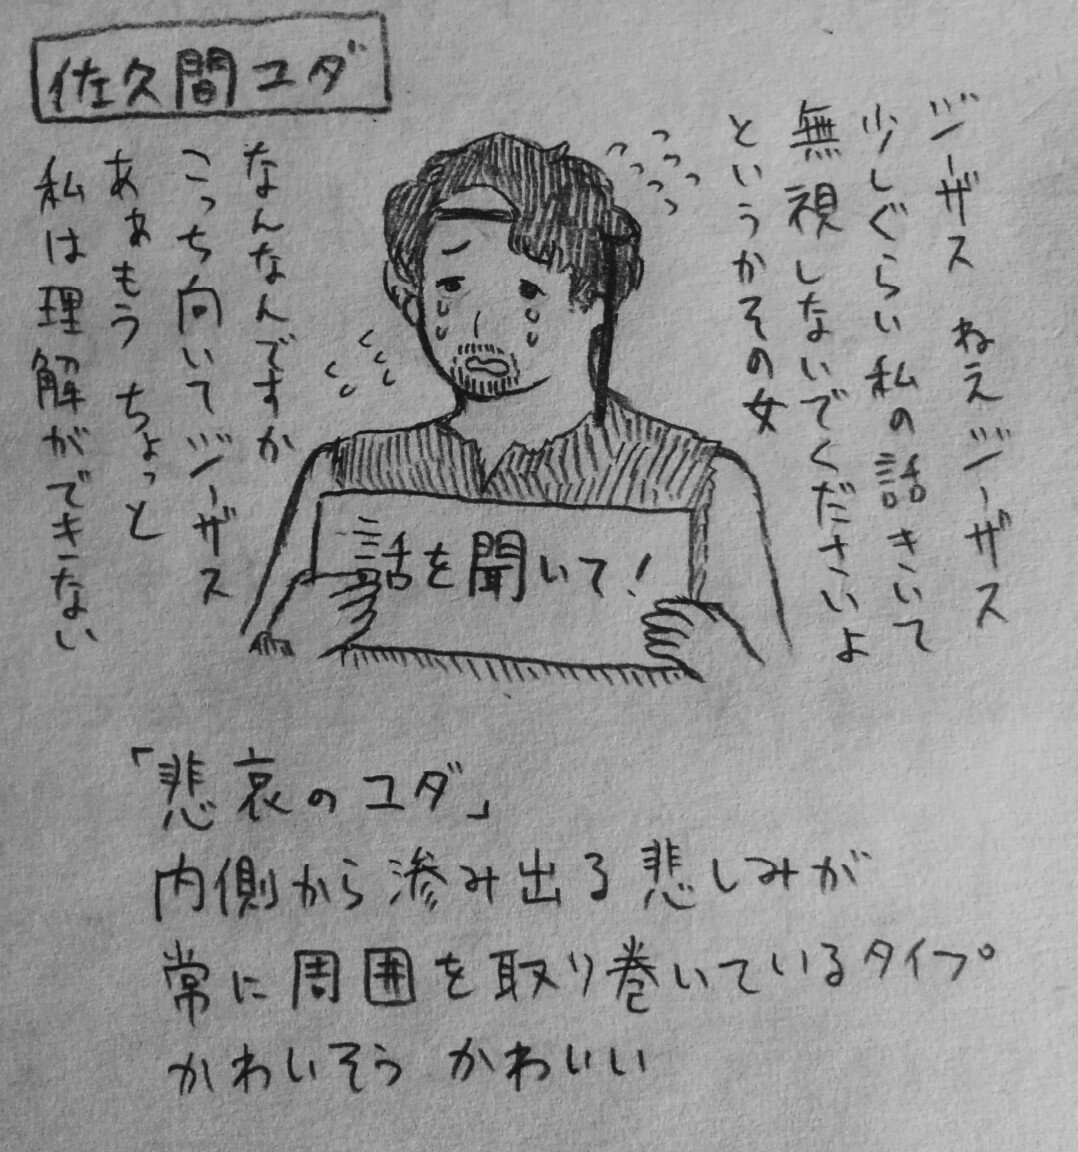 佐久間ユダ
ジーザス ねえジーザス
少しぐらい私の話きいて
無視しないでくださいよ
というかその女
なんなんですか
こっち向いてジーザス
あぁもう ちょっと
私は理解ができない
話を聞いて!
「悲哀のユダ」
内側から滲み出る悲しみが
常に周囲を取り巻いているタイプ。
かわいそう かわいい